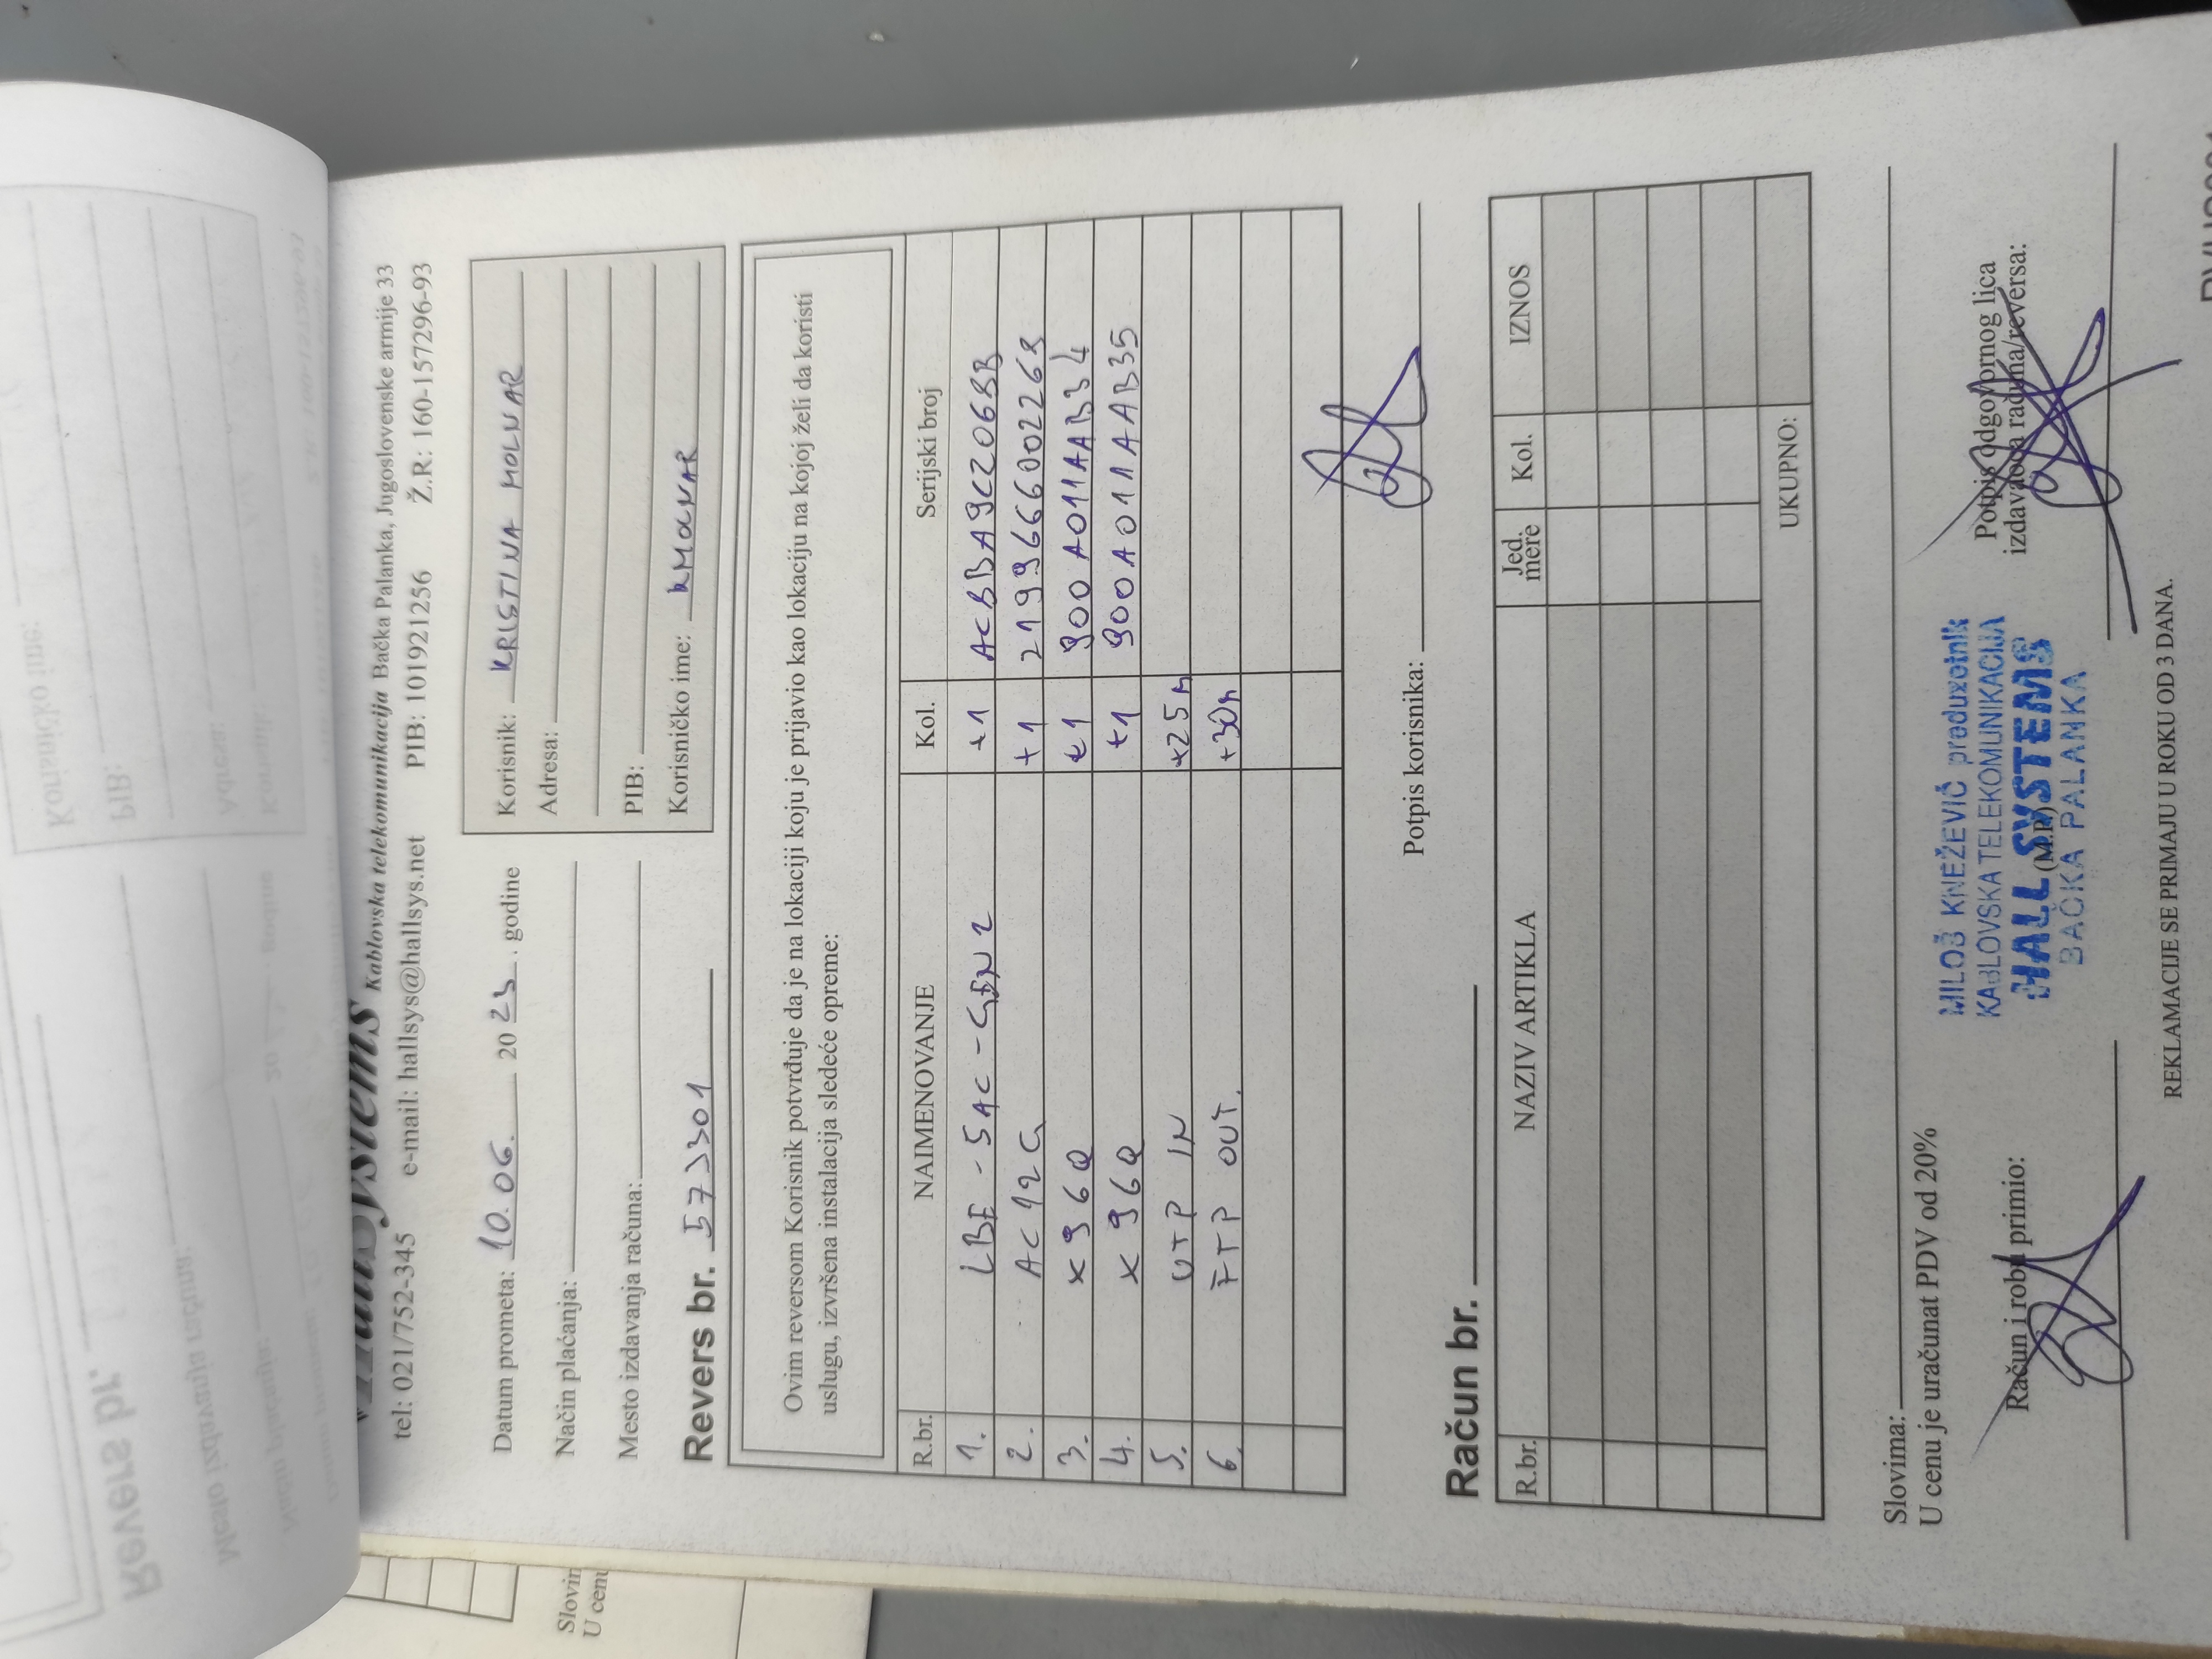 HallSystems Kablovska telekomunikacija Bačka Palanka, Jugoslovenske armije 33
tel: 021/752-345 e-mail: hallsys@hallsys.net PIB: 101921256 Ž.R: 160-157296-93
Datum prometa: 10.06. 2023. godine
Način plaćanja:
Mesto izdavanja računa:
Korisnik: KRISTINA MOLNAR
Adresa:
PIB:
Korisničko ime: KMOLNAR
Revers br. 573301
Ovim reversom Korisnik potvrđuje da je na lokaciji koju je prijavio kao lokaciju na kojoj želi da koristi
uslugu, izvršena instalacija sledeće opreme:
R.br. NAIMENOVANJE Kol. Serijski broj
1. LBE-5AC-GEN2 +1
2. AC12G +1
3. X96Q +1 900A011AAB34
4. X96Q +1 900A011AAB35
5. UTP IN +25m
6. FTP OUT. +30m
Potpis korisnika:
Račun br.
R.br. NAZIV ARTIKLA Jed. mere Kol. IZNOS
UKUPNO:
Slovima:
U cenu je uračunat PDV od 20%
Račun i robu primio:
MILOŠ KNEŽEVIĆ preduzetnik
KABLOVSKA TELEKOMUNIKACIJA
HALL SYSTEMS
(M.P.)
BAČKA PALANKA
Potpis odgovornog lica
izdavaoca računa/reversa:
REKLAMACIJE SE PRIMAJU U ROKU OD 3 DANA.
Slovim
U cenu